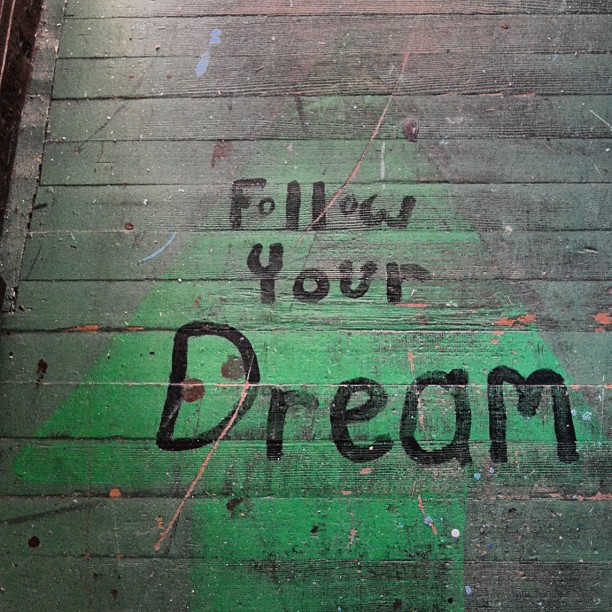 Follow
Your
Dream